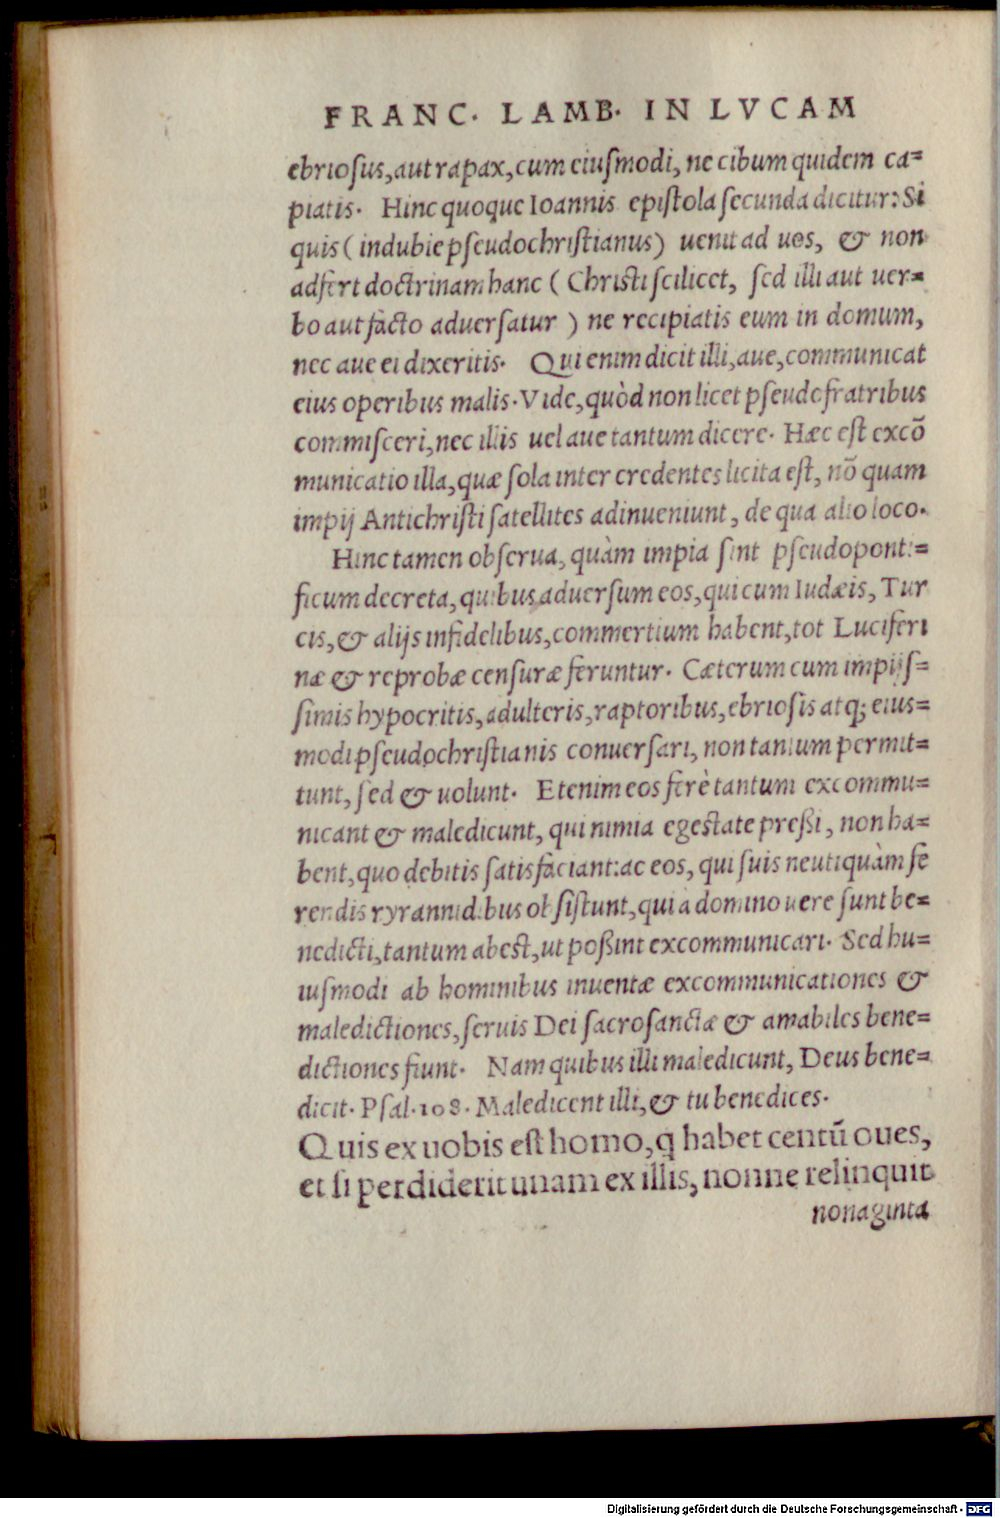 FRANC. LAMB. IN LVCAM
ebriosus, aut rapax, cum eiusmodi, ne cibum quidem ca=
piatis. Hinc quoque Ioannis epistola secunda dicitur: Si
quis ( indubie pseudochristianus) uenit ad uos, & non
adfert doctrinam hanc ( Christi scilicet, sed illi aut uer=
bo aut facto aduersatur ) ne recipiatis eum in domum,
nec aue ei dixeritis. Qui enim dicit illi, aue, communicat
eius operibus malis. Vide, quòd non licet pseudofratribus
commisceri, nec illis uel aue tantum dicere. Hæc est excō
municatio illa, quæ sola inter credentes licita est, nō quam
impij Antichristi satellites adinueniunt, de qua alio loco.
Hinc tamen obserua, quàm impia sint pseudoponti=
ficum decreta, quibus aduersum eos, qui cum Iudæis, Tur
cis, & alijs infidelibus, commertium habent, tot Luciferi
næ & reprobæ censuræ feruntur. Cæterum cum impijs=
simis hypocritis, adulteris, raptoribus, ebriosis atq; eius=
modi pseudochristianis conuersari, non tantum permit=
tunt, sed & uolunt. Etenim eos ferè tantum excommu=
nicant & maledicunt, qui nimia egestate preßi, non ha=
bent, quo debitis satisfaciant: ac eos, qui suis neutiquàm fe
rendis ryrannidibus obsistunt, qui a domino uere sunt be=
nedicti, tantum abest, ut poßint excommunicari. Sed hu=
iusmodi ab hominibus inuentæ excommunicationes &
maledictiones, seruis Dei sacrosanctæ & amabiles bene=
dictiones fiunt. Nam quibus illi maledicunt, Deus bene=
dicit. Psal. 108. Maledicent illi, & tu benedices.
Quis ex uobis est homo, q habet centū oues,
et si perdiderit unam ex illis, nonne relinquit
nonaginta
Digitalisierung gefördert durch die Deutsche Forschungsgemeinschaft - DFG